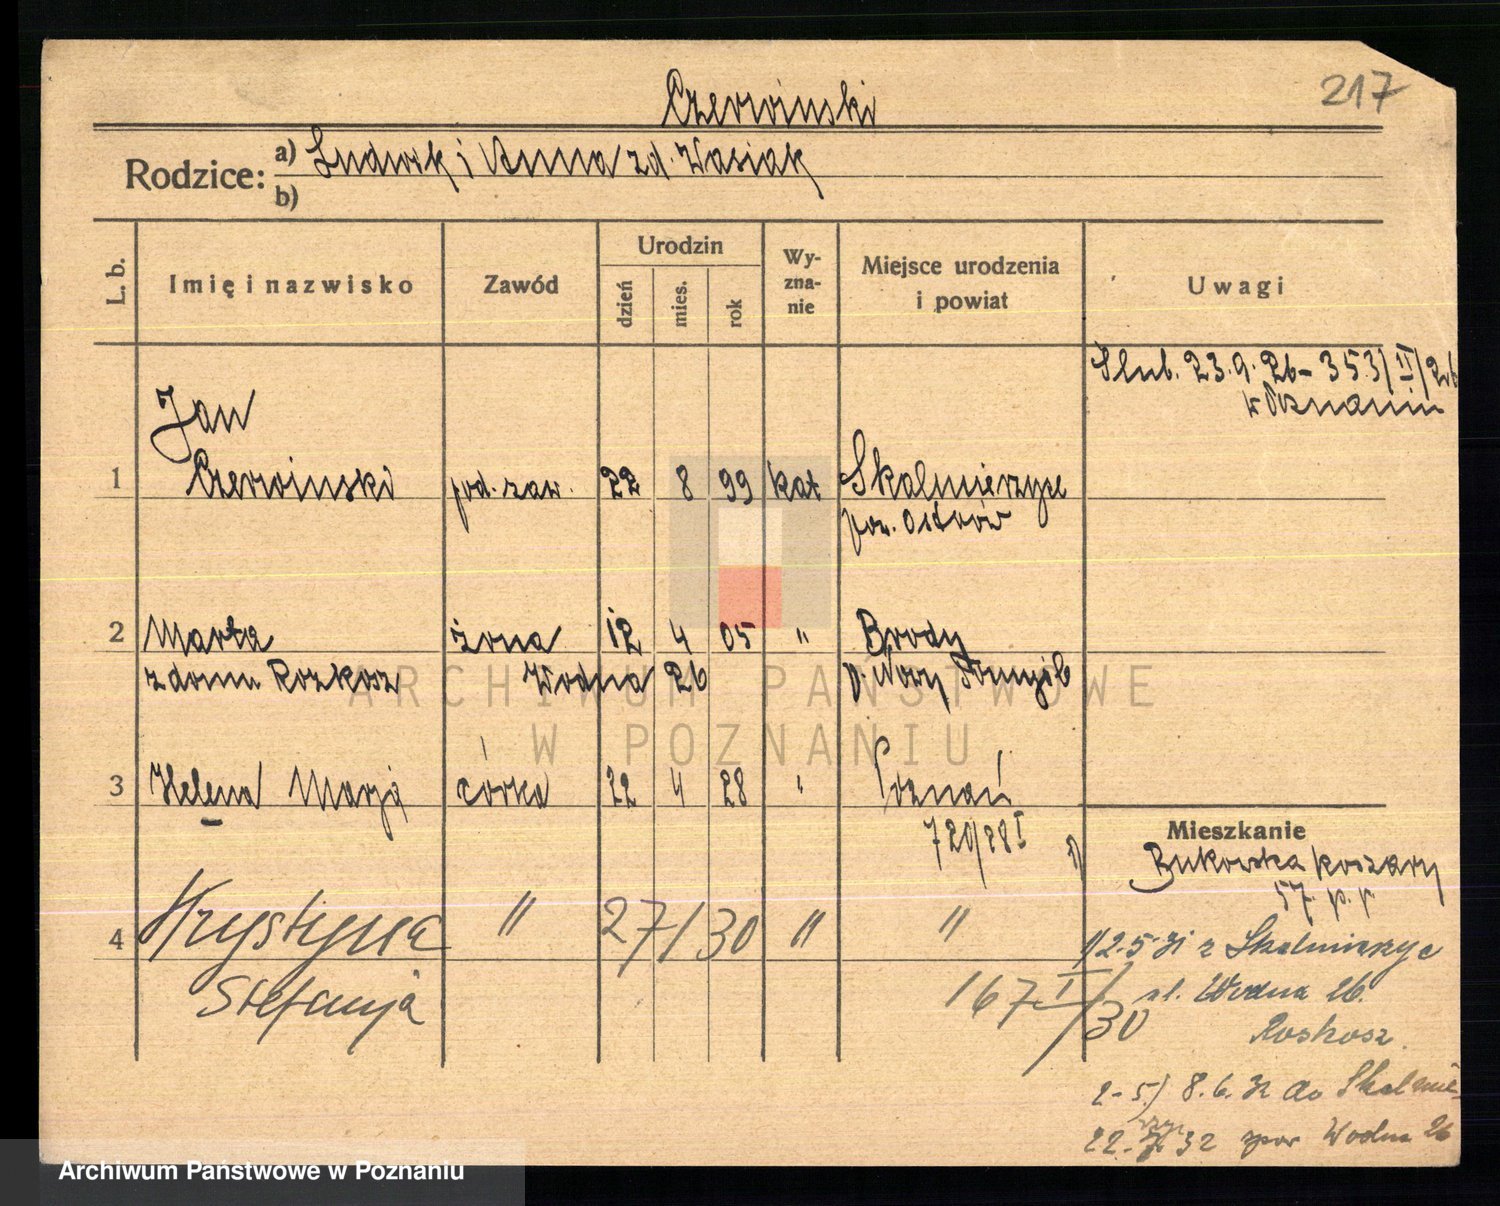 217
Czerwiński
Rodzice: a) Ludwik i Anna zd. Wasiak
b)
L. b. Imię i nazwisko Zawód Urodzin dzień mies. rok Wyzna-nie Miejsce urodzenia i powiat Uwagi
Ślub. 23.9.26 - 353/II/26
w Poznaniu
Jan
1 Czerwiński pod. zaw. 22 8 99 kat Skalmierzyce
pow. Ostrów
2 Marta żona 12 4 05 " Brody
z domu Rozkosz Wodna 26 p. Nowy Tomyśl
3 Helena Marja córka 22 4 28 " Poznań
720/28 I
Mieszkanie
Bukowska koszary
57 p. p
4 Krystyna " 27/30 " "
Stefanja 167 I/30
1/ 2.5.31 z Skalmierzyc
ul. Wodna 26.
Roskosz.
2-5/ 8.6.32 do Skalmie-
22. 32 Wodna 26
ARCHIWUM PAŃSTWOWE
W POZNANIU
Archiwum Państwowe w Poznaniu